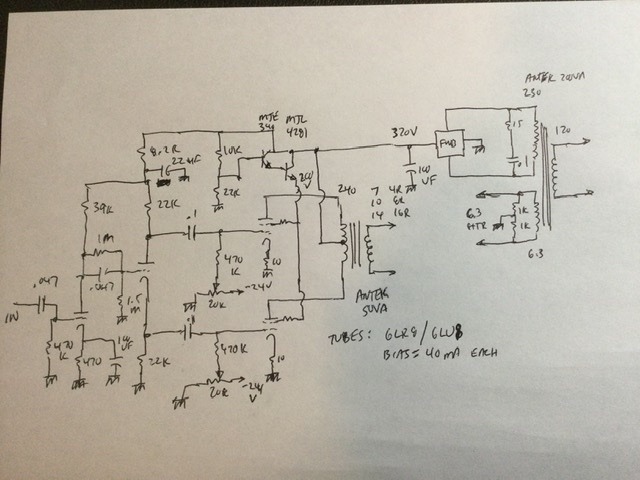 ANTEK 200VA
230
120
.15
.1
FWB
320V
100
UF
6.3
HTR
1K
1K
6.3
MJE
340
MJL
4281
8.2K
22UF
10K
22K
210
V
39K
22K
1M
.1
.047
.047
IN
470
K
470
10
UF
1.5
M
22K
470
K
10
-24V
20K
.1
470K
10
20K
-24
V
240
7 4R
10 8R
14 16R
ANTEK
50VA
TUBES: 6LR8/6LU8
BIAS= 40mA EACH